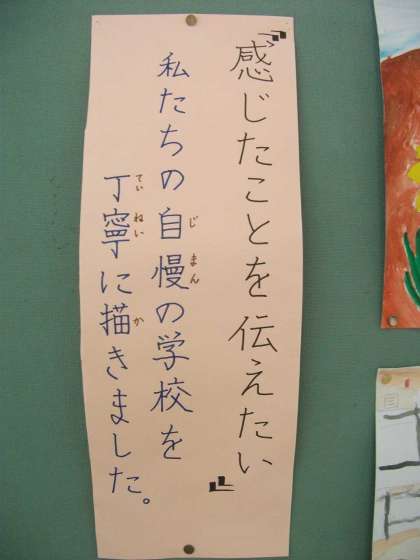 『感じたことを伝えたい』
私たちの自慢の学校を
丁寧に描きました。